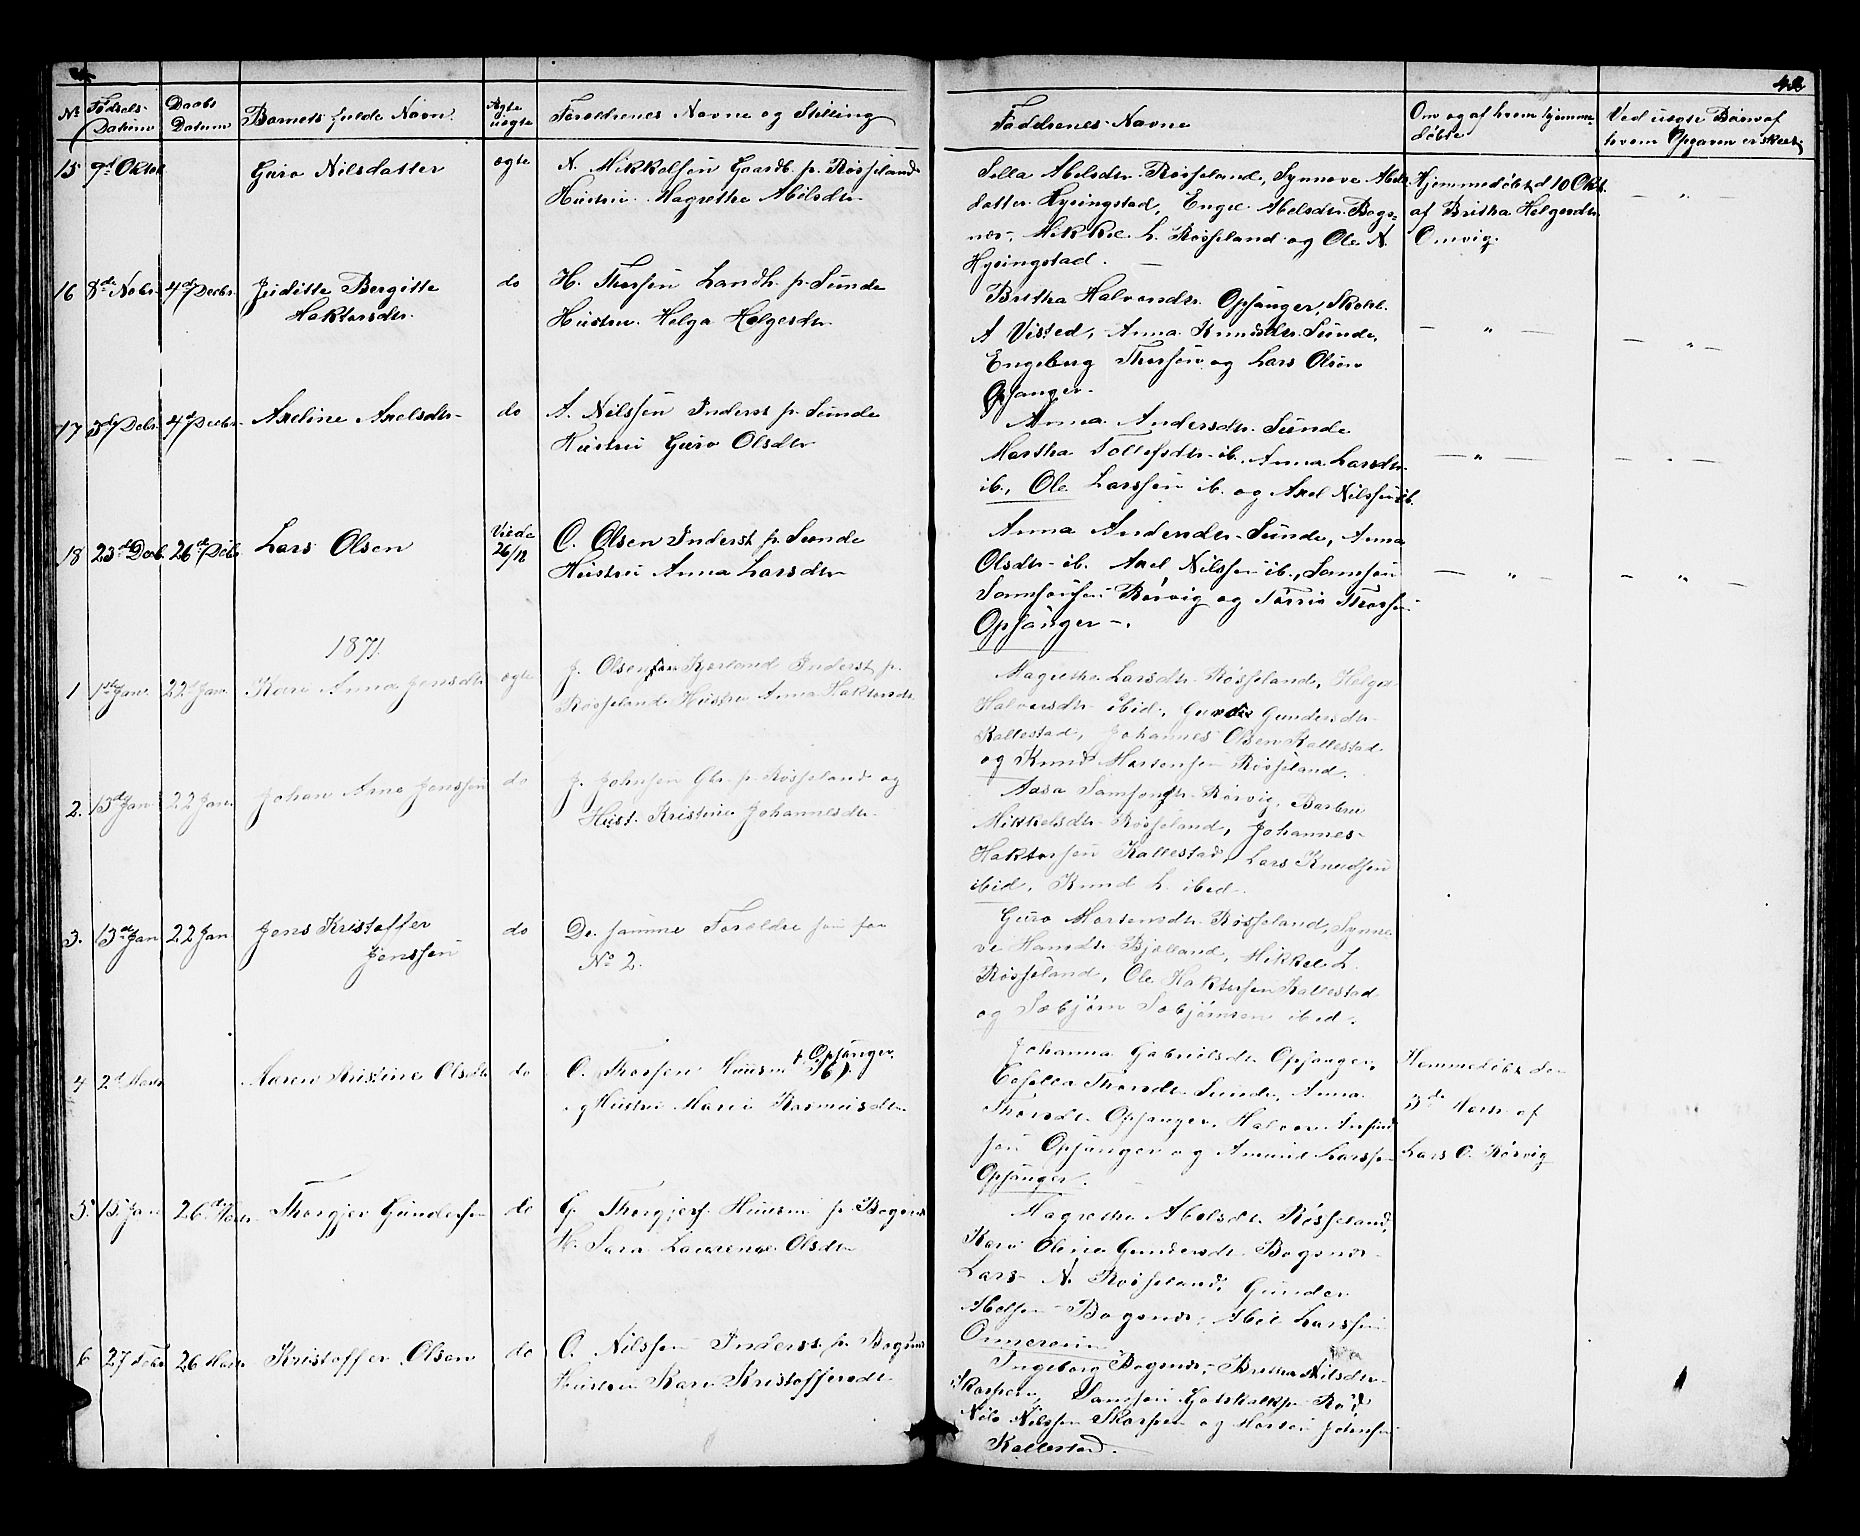 42
No Fødsels- Datum Daabs Datum Barnets fulde Navn. Ægte uægte Forældrenes Navne og Stilling Faddrenes Navne Om og af hvem hjemmedøbte Ved uægte Børn af hvem Opgaven er skeet
15 9d Oktob Guro Nilsdatter ægte N. Mikkelsen Gaardb. p. Røsseland
Hustru Magrethe Abelsdtr
Sella Abelsdtr Røsseland, Synneve Abels
datter Hysingstad, Engel Abelsdtr Bogs=
næs, Mikkel L. Røsseland og Ole N.
Hysingstad.
Hjemmedøbt d 10 Okt.
af Britha Helgesdtr
Omvig.
— " —
16 8de Nobr 4de Decbr Juditte Bergitte
Haktorsdtr.
do H. Thorsen Landh. p. Sunde
Hustru Helga Helgesdtr
Britha Halvorsdtr Opsanger, Skoleh.
A Visted, Anna Knudsdtr Sunde,
Engeborg Thorsen og Lars Olsen
Opsanger.
— " —
— " —
17 3d Debr 4de Decbr Axeline Axelsdtr
do A. Nilssen Inderst p. Sunde
Hustru Guro Olsdtr
Anna Andersdtr Sunde
Martha Tollefsdtr ib., Anna Larsdtr
ib., Ole Larssen ib. og Axel Nilssen ib.
— " —
— " —
18 23de Decb. 26de Debr Lars Olsen
Viede 26/12
O. Olsen Inderst p. Sunde
Hustru Anna Larsdtr
Anna Andersdtr Sunde, Anna
Olsdtr ib. Axel Nilssen ib., Samson
Samsonsen Rørvig og Tørris Thorsen
Opsanger.
— " —
— " —
1871.
1 1ste Jan. 22 Jan. Kari Anna Jonsdtr ægte J. Olsen Kjerland Inderst p.
Røsseland Hustru Anna Haktorsdtr
Magrethe Larsdtr Røsseland, Helga
Halvorsdtr ibid., Gundersdtr
Kallestad, Johannes Olsen Kallestad
og Knud Mortensen Røsseland.
2. 13d Jan 22 Jan. Johan Arne Jonssen do J. Johnsen Gbr. p. Røsseland og
Hust. Kristine Johannesdtr
Aasa Samsonsdtr Rørvig, Barbru
Mikkelsdtr Røsseland, Johannes
Haktorsen Kallestad, Lars Knudsen
ibid, Knud L. ibid.
3. 13de Jan 22 Jan Jens Kristoffer
Jonssen
do De samme Forældre som for
No 2.
Guro Mortensdtr Røsseland, Synne
ve Hansdtr Bjelland, Mikkel L.
Røsseland, Ole Haktorsen Kallestad
og Sæbjørn Sæbjørnsen ibid.
4 2d Marts Maren Kristine Olsdtr do O. Thorsen Huusm p Opsanger
og Hustru Mari Rasmusdtr
Johanna Gabrielsdtr Opsanger,
Thorsdtr Sunde, Anna
Thorsdtr Opsanger, Halvor
sen Opsanger og Amund Larssen
Opsanger.
Hjemmedøbt den
3de Marts af
Lars O. Rørvig
5. 15 Jan 26de Marts Thorgjer Gundersen do G. Thorgjers. Huusm p. Bogsnæs
H. Sara Laurense Olsdtr
Magrethe Abelsdtr Røsseland,
Kari Olina Gundersdtr Bogsnæs
Lars N. Røsseland, Gunder
Abelsen Bogsnæs, Abel Larssen
6 27 Febr 26 Marts Kristoffer Olsen do O. Nilssen Inderst p. Bogsnæs
Hustru Kari Kristoffersdtr
Ingeborg Bogsnæs, Britha Nilsdtr
Skorpen, Samson Rød
Nils Nilssen Skorpen og Morten Johnsen
Kallestad.